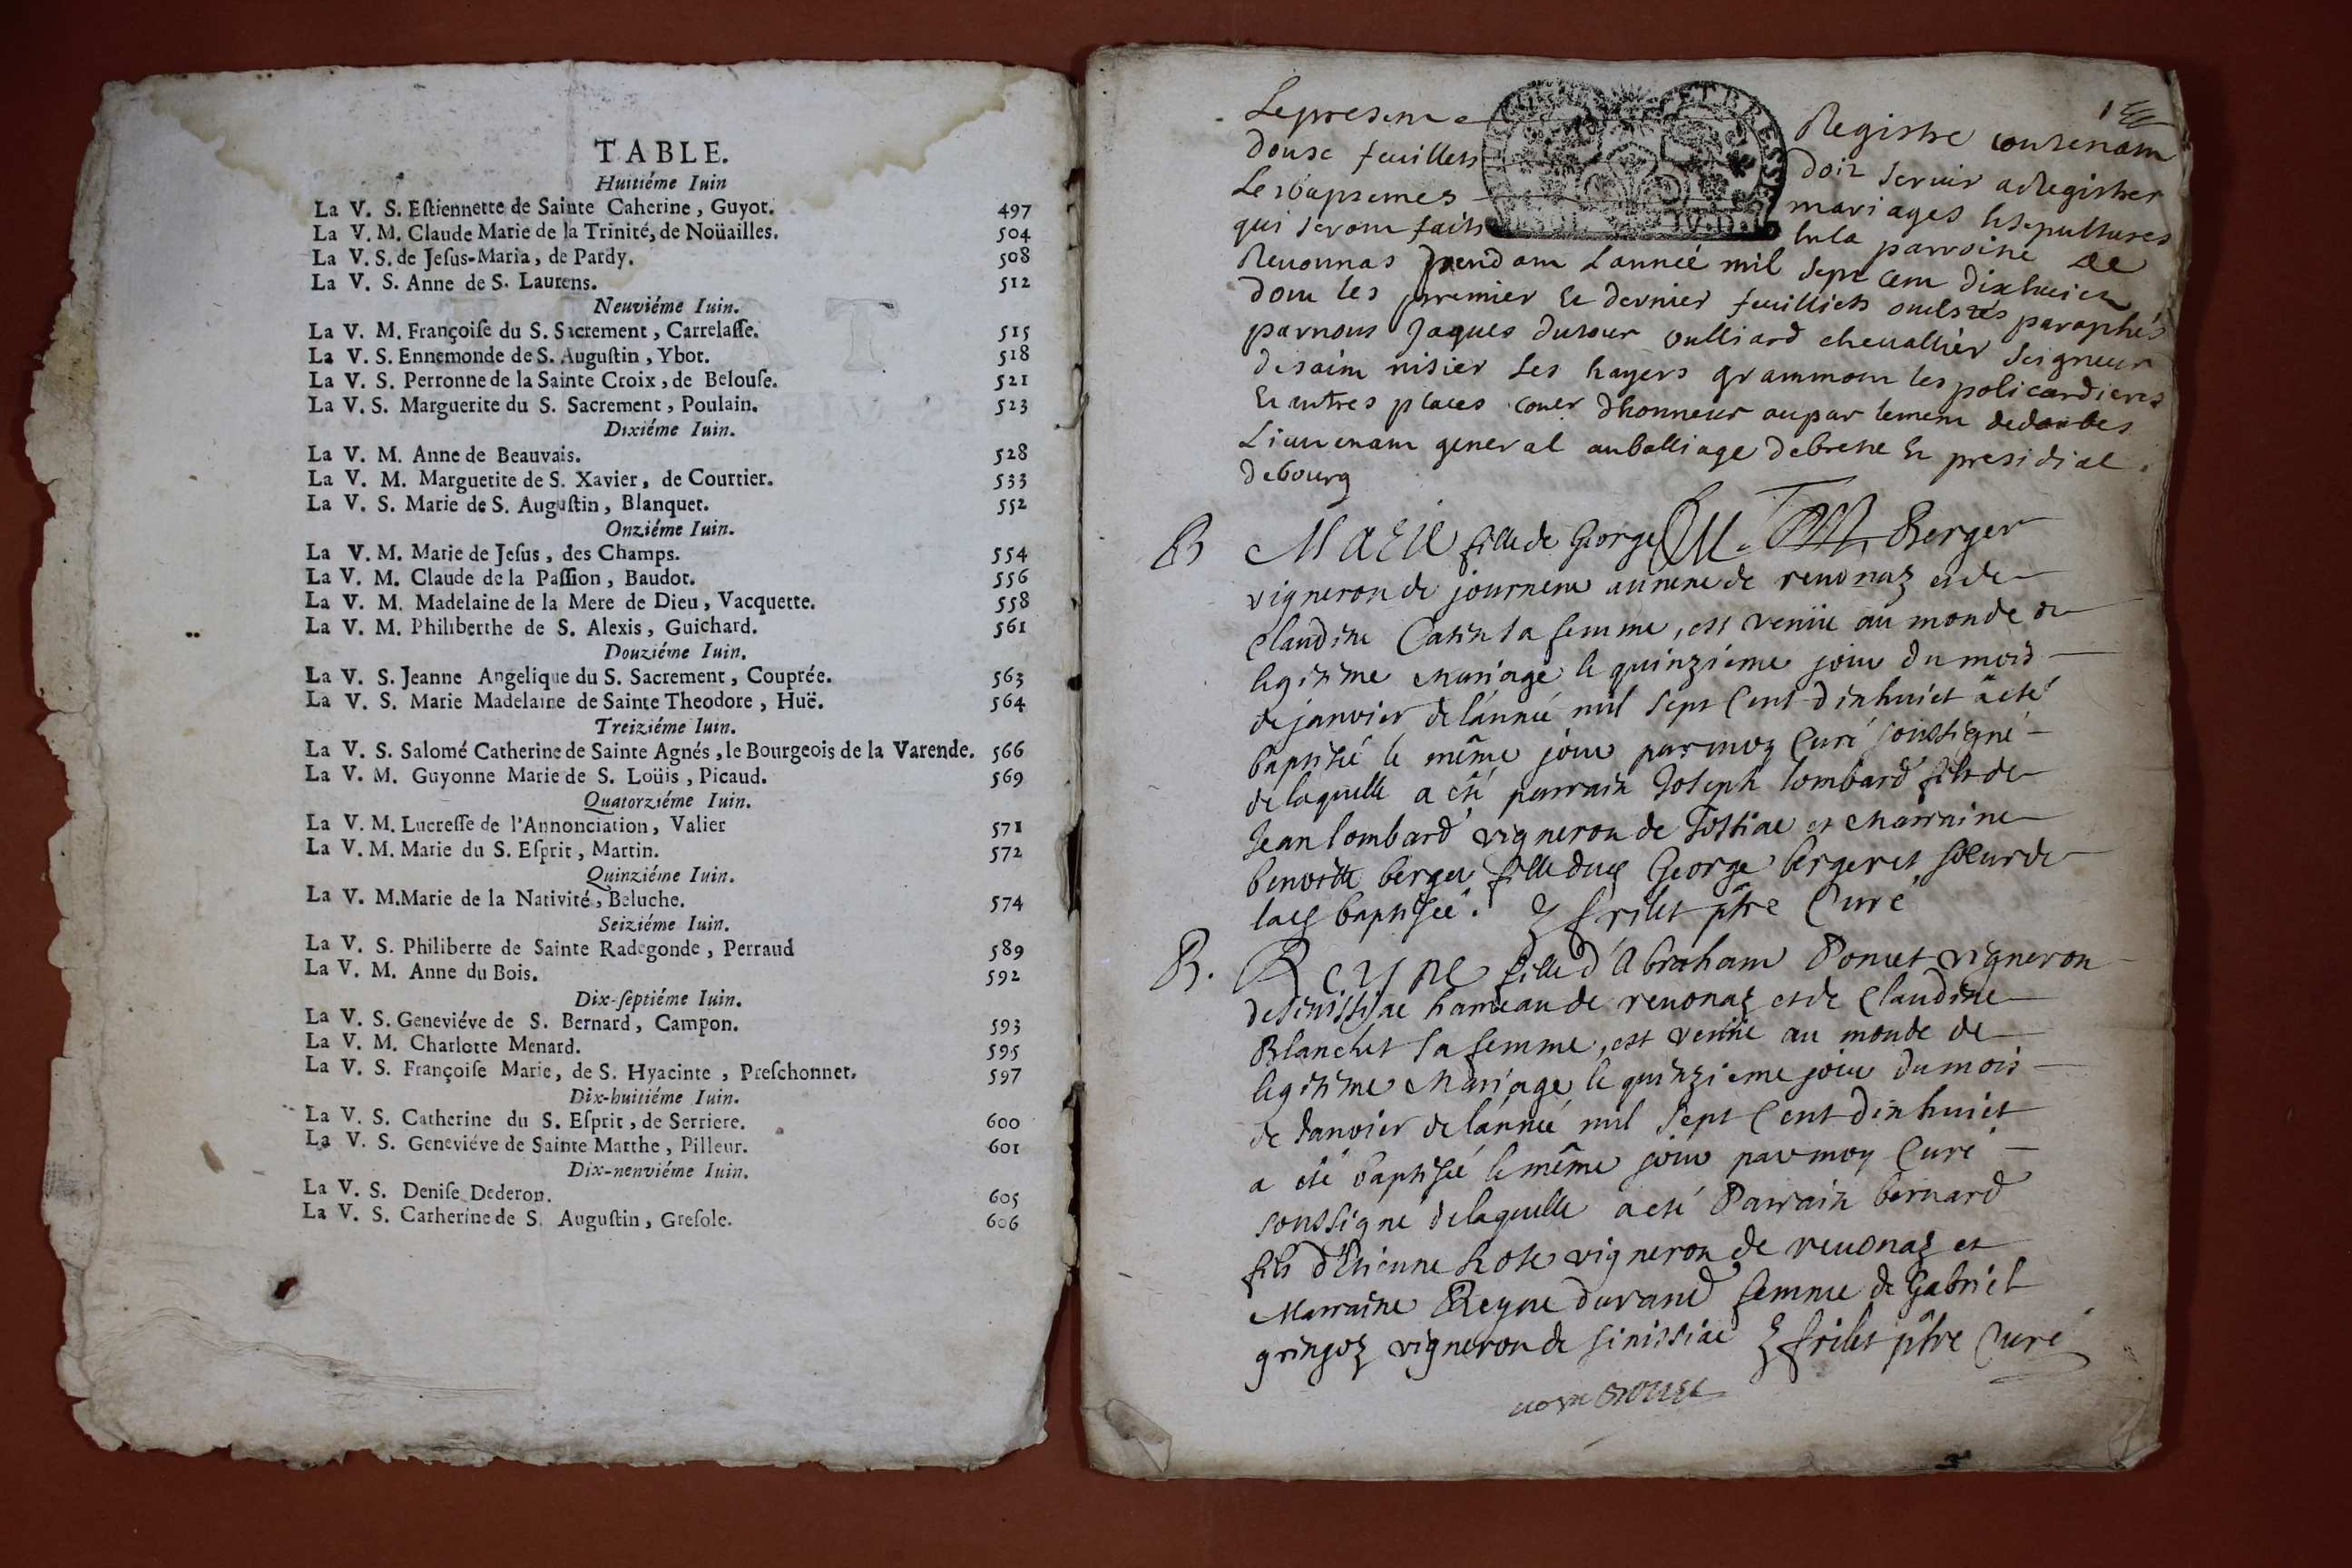 TABLE.
Huitiéme Iuin
La V. S. Eſtiennette de Sainte Caherine, Guyot. 497
La V. M. Claude Marie de la Trinité, de Noüailles. 504
La V. S. de Jeſus-Maria, de Pardy. 508
La V. S. Anne de S. Laurens. 512
Neuviéme Iuin.
La V. M. Françoiſe du S. Sacrement, Carrelaſſe. 515
La V. S. Ennemonde de S. Auguſtin, Ybot. 518
La V. S. Perronne de la Sainte Croix, de Belouſe. 521
La V. S. Marguerite du S. Sacrement, Poulain. 523
Dixiéme Iuin.
La V. M. Anne de Beauvais. 528
La V. M. Marguetite de S. Xavier, de Courtier. 533
La V. S. Marie de S. Auguſtin, Blanquet. 552
Onziéme Iuin.
La V. M. Marie de Jeſus, des Champs. 554
La V. M. Claude de la Paſſion, Baudot. 556
La V. M. Madelaine de la Mere de Dieu, Vacquette. 558
La V. M. Philiberthe de S. Alexis, Guichard. 561
Douziéme Iuin.
La V. S. Jeanne Angelique du S. Sacrement, Couprée. 563
La V. S. Marie Madelaine de Sainte Theodore, Huë. 564
Treiziéme Iuin.
La V. S. Salomé Catherine de Sainte Agnés, le Bourgeois de la Varende. 566
La V. M. Guyonne Marie de S. Loüis, Picaud. 569
Quatorziéme Iuin.
La V. M. Lucreſſe de l'Annonciation, Valier 571
La V. M. Marie du S. Eſprit, Martin. 572
Quinziéme Iuin.
La V. M. Marie de la Nativité, Beluche. 574
Seiziéme Iuin.
La V. S. Philiberte de Sainte Radegonde, Perraud 589
La V. M. Anne du Bois. 592
Dix-ſeptiéme Iuin.
La V. S. Geneviéve de S. Bernard, Campon. 593
La V. M. Charlotte Menard. 595
La V. S. Françoiſe Marie, de S. Hyacinte, Preſchonnet. 597
Dix-huitiéme Iuin.
La V. S. Catherine du S. Eſprit, de Serriere. 600
La V. S. Geneviéve de Sainte Marthe, Pilleur. 601
Dix-nenviéme Iuin.
La V. S. Deniſe Dederon. 605
La V. S. Catherine de S. Auguſtin, Greſole. 606
Le present Registre contenant
douse feuillets doit servir a Registrer
Les baptemes mariages & sepultures
qui seront faits en la parroisse de
Reuonnas pendant Lanneé mil sept cent dixhuict
dont les premier et dernier feuilliets ont estés paraphés
par nous Jaques dutour vulliard chevallier seigneur
de saint nisier Les hayers grammont les policardieres
Et autres places coner dhonneur au parlement de dombes
Lieutenant general au balliage de bresse Et presidial
de bourg
B Marie fille de George Berger
vigneron de journenc annexe de revonaz et de
Claudine Catin sa femme, est venüe au monde de
legitime Mariage le quinzieme jour du mois
de janvier de lánneé mil sept Cent dixhuict a eté
baptiseé le même jour par moy Curé soussigné
de laquelle a eté parrain Joseph lombard fils de
Jean lombard vigneron de Tossiac et Marraine
benoitte berger fille dud George berger et soeur de
lad baptiseé. frilet ptre Curé
B. Reyne fille d'Abraham Poncet vigneron
de Senissiac hameau de revonaz et de Claudine
Blanchet sa femme, est venüe au monde de
legitime Mariage le quinzieme jour du mois
de Janvier de lánneé mil sept Cent dixhuict
a eté baptiseé le même jour par moy Curé
soussigné de laquelle a eté Parrain bernard
fils d'Etienne hote vigneron de revonaz et
Marraine Reyne durand femme de Gabriel
gringoz vigneron de sinissiac frilet ptre Curé